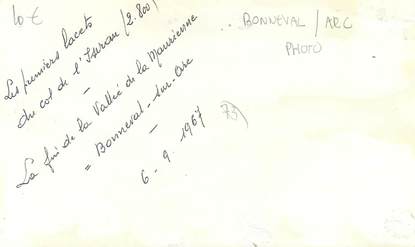 10 €
BONNEVAL / ARC
PHOTO
Les premiers lacets
du col de l'Iseran (2.800)
—
La fin de la Vallée de la Maurienne
= Bonneval-sur-Arc
—
6 - 9 . 1967
73